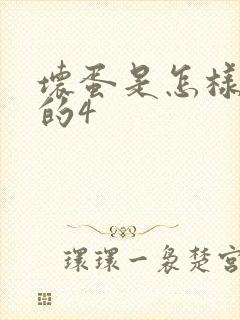 壞蛋是怎樣
的4
環環一裊楚宮